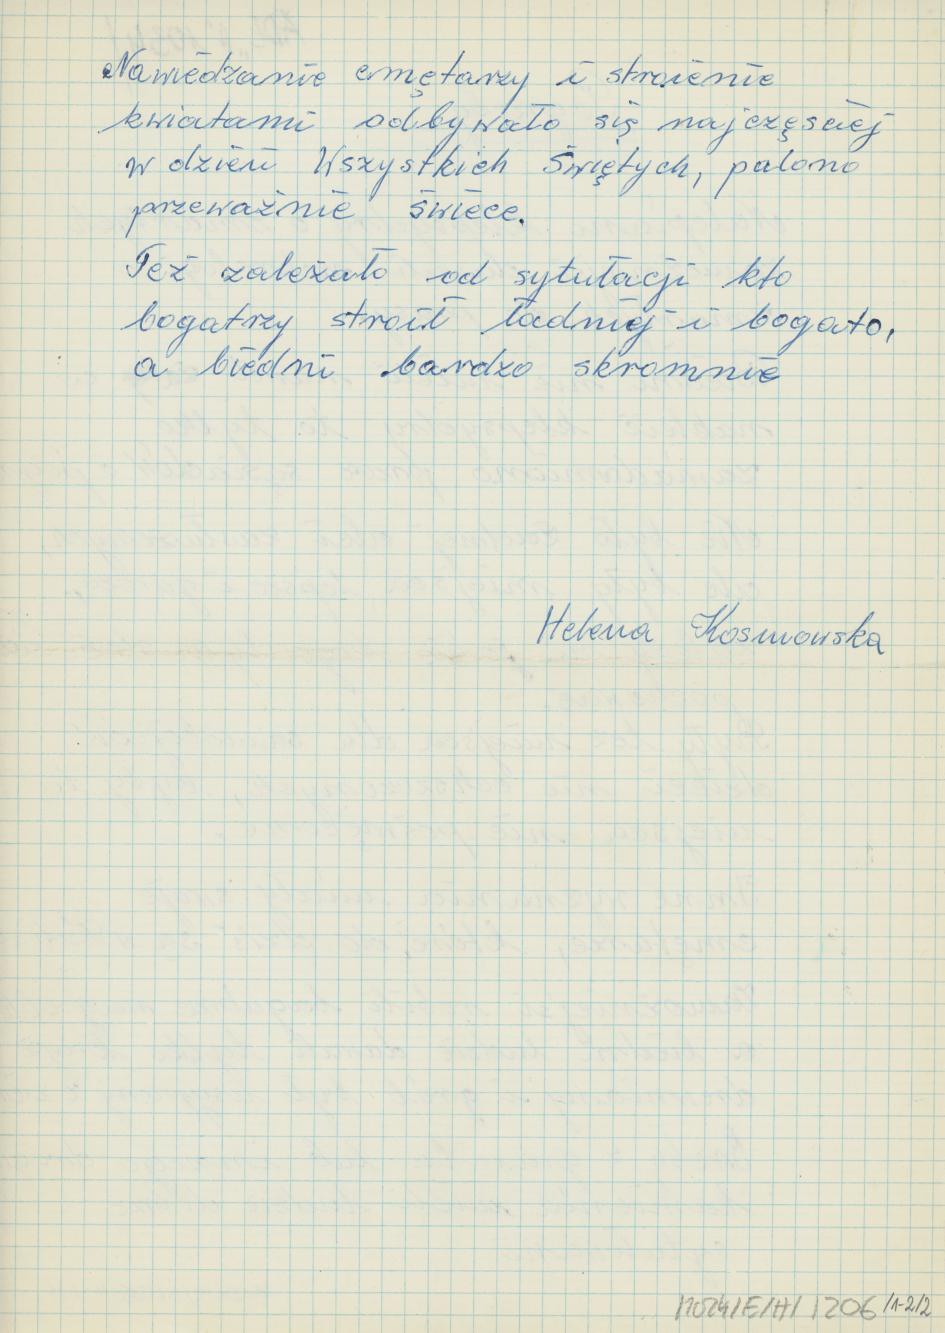 Nawiedzanie cmętarzy i stroienie
kwiatami odbywało się najczęsciej
w dzień Wszystkich Świętych, palono
przeważnie świece.
Też zależało od sytułacji kto
bogatrzy stroił ładniej i bogato,
a biedni bardzo skromnie
Helena Kosmowska
/1-2/2